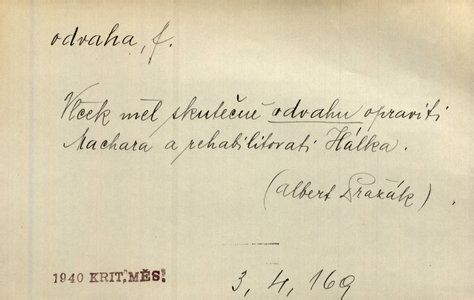 odvaha, f.
Vlček měl skutečně odvahu opraviti
Machara a rehabilitovati Hálka.
(Albert Pražák).
1940 KRIT. MĚS.
3, 4, 169